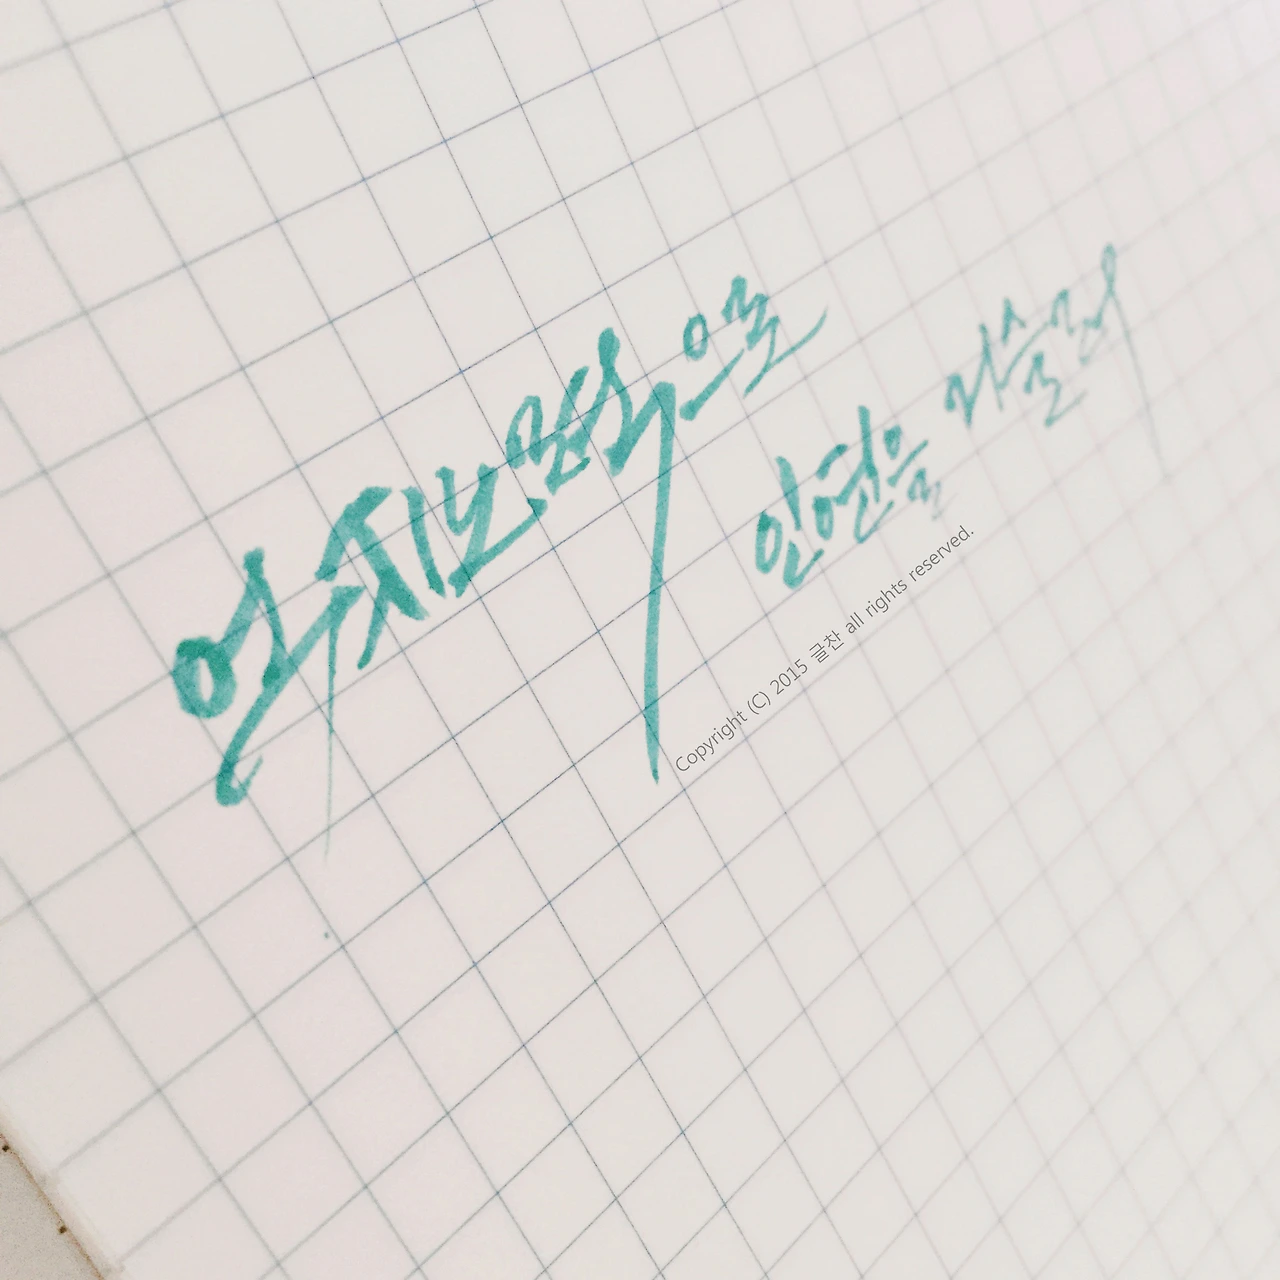 억지노력으로
인연을 거슬러
Copyright (C) 2015 글찬 all rights reserved.